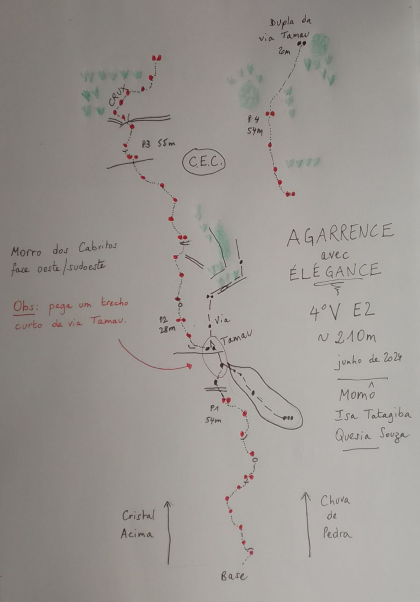 Dupla da
via Tamau
20m
CRUX
P.4
54m
P.3 55m
C.E.C.
AGARRENCE
avec
ÉLÉGANCE
4º V E2
~ 210m
junho de 2024
Momô
Isa Tatagiba
Quesia Souza
Morro dos Cabritos
face oeste/sudoeste
Obs: pega um trecho
curto da via Tamau.
P.2
28m
via
Tamau
P.1
54m
Cristal
Acima
Chuva
de
Pedra
Base